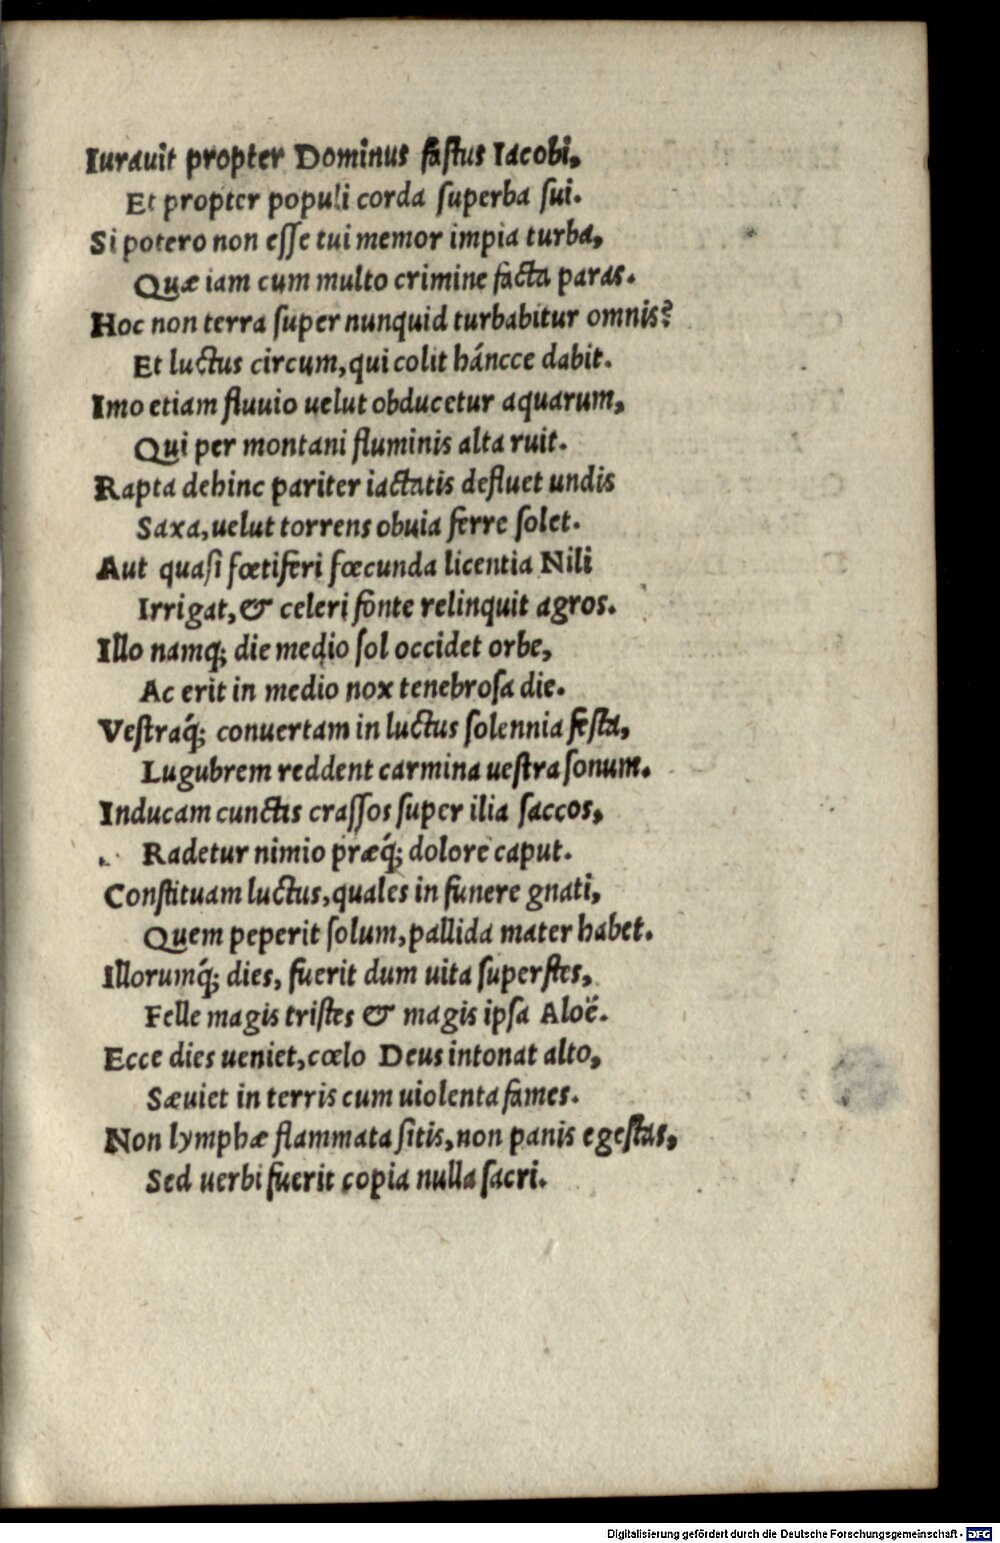 Iurauit propter Dominus fastus Iacobi,
Et propter populi corda superba sui.
Si potero non esse tui memor impia turba,
Quæ iam cum multo crimine facta paras.
Hoc non terra super nunquid turbabitur omnis?
Et luctus circum, qui colit háncce dabit.
Imo etiam fluuio uelut obducetur aquarum,
Qui per montani fluminis alta ruit.
Rapta dehinc pariter iactatis defluet undis
Saxa, uelut torrens obuia ferre solet.
Aut quasi fœtiferi fœcunda licentia Nili
Irrigat, & celeri fonte relinquit agros.
Illo namq; die medio sol occidet orbe,
Ac erit in medio nox tenebrosa die.
Vestraq́; conuertam in luctus solennia festa,
Lugubrem reddent carmina uestra sonum.
Inducam cunctis crassos super ilia saccos,
Radetur nimio præq́; dolore caput.
Constituam luctus, quales in funere gnati,
Quem peperit solum, pallida mater habet.
Illorumq́; dies, fuerit dum uita superstes,
Felle magis tristes & magis ipsa Aloë.
Ecce dies ueniet, cœlo Deus intonat alto,
Sæuiet in terris cum uiolenta fames.
Non lymphæ flammata sitis, non panis egestas,
Sed uerbi fuerit copia nulla sacri.
Digitalisierung gefördert durch die Deutsche Forschungsgemeinschaft - DFG